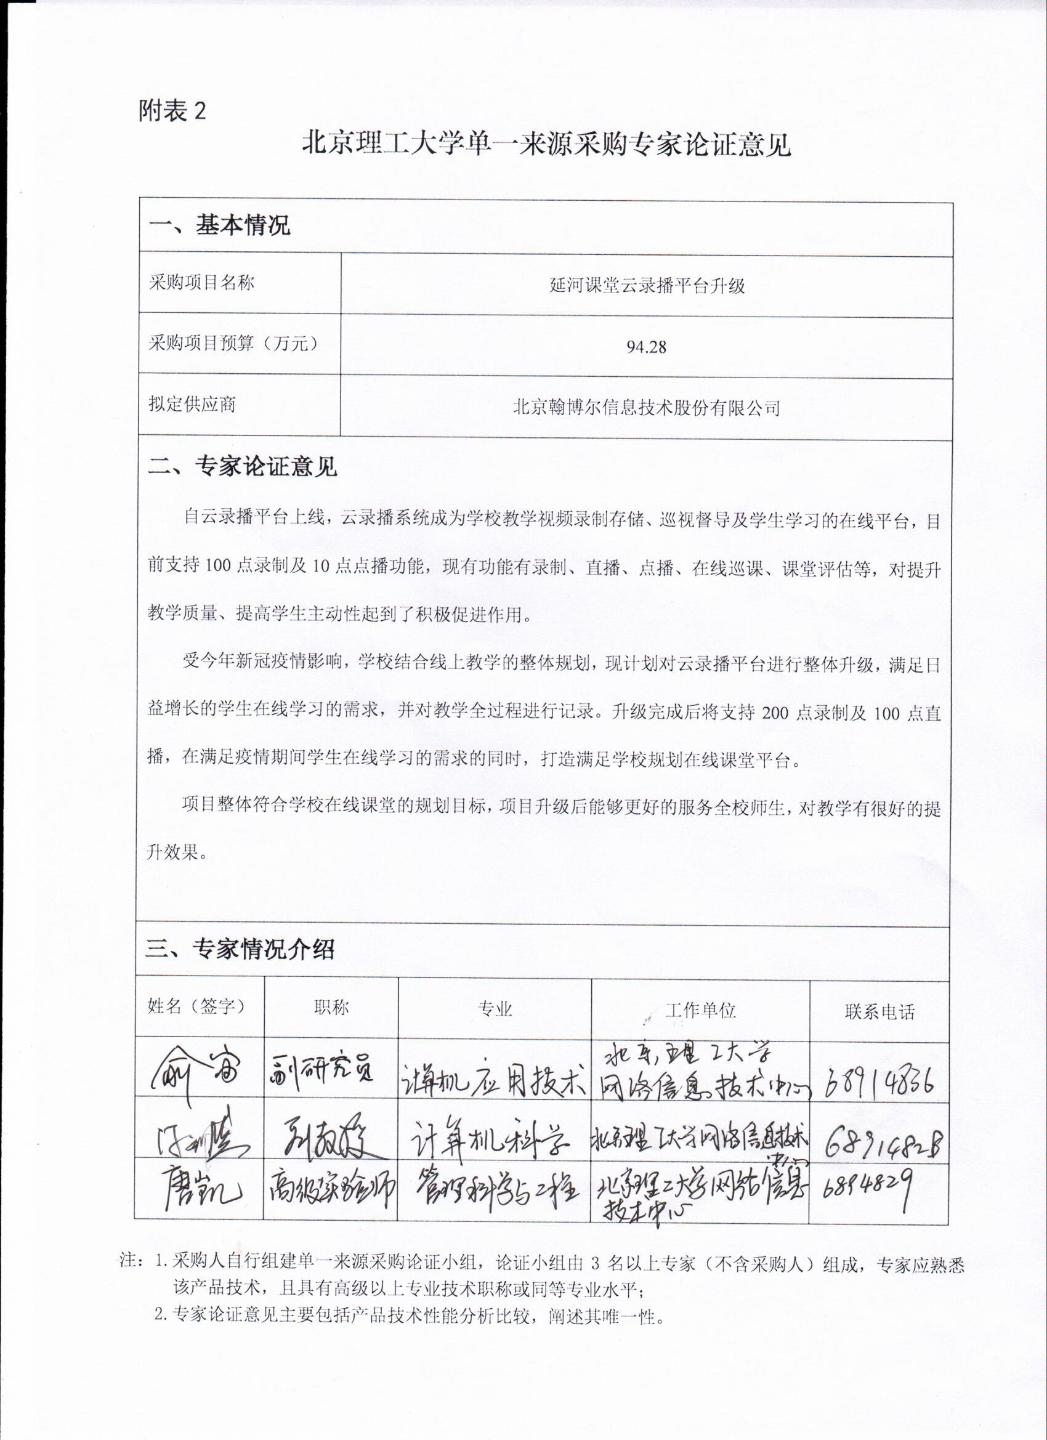 附表 2
北京理工大学单一来源采购专家论证意见
一、基本情况
采购项目名称
延河课堂云录播平台升级
采购项目预算（万元）
94.28
拟定供应商
北京翰博尔信息技术股份有限公司
二、专家论证意见
自云录播平台上线，云录播系统成为学校教学视频录制存储、巡视督导及学生学习的在线平台，目
前支持 100 点录制及 10 点点播功能，现有功能有录制、直播、点播、在线巡课、课堂评估等，对提升
教学质量、提高学生主动性起到了积极促进作用。
受今年新冠疫情影响，学校结合线上教学的整体规划，现计划对云录播平台进行整体升级，满足日
益增长的学生在线学习的需求，并对教学全过程进行记录。升级完成后将支持 200 点录制及 100 点直
播，在满足疫情期间学生在线学习的需求的同时，打造满足学校规划在线课堂平台。
项目整体符合学校在线课堂的规划目标，项目升级后能够更好的服务全校师生，对教学有很好的提
升效果。
三、专家情况介绍
姓名（签字）
职称
专业
工作单位
联系电话
副研究员
计算机应用技术
北京理工大学
网络信息技术中心
68914836
副教授
计算机科学
北京理工大学网络信息技术
中心
68914828
唐凯
高级实验师
管理科学与工程
北京理工大学网络信息
技术中心
6894829
注：1. 采购人自行组建单一来源采购论证小组，论证小组由 3 名以上专家（不含采购人）组成，专家应熟悉
该产品技术，且具有高级以上专业技术职称或同等专业水平；
2. 专家论证意见主要包括产品技术性能分析比较，阐述其唯一性。